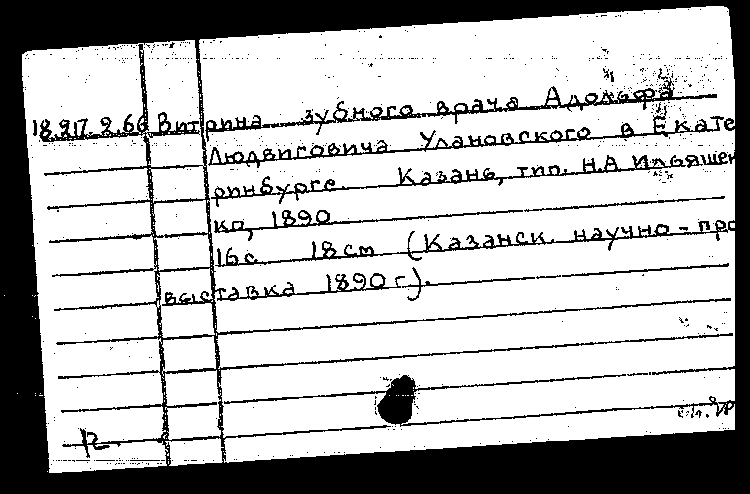 18.217.2.66 Витрина зубного врача Адольфа
Людвиговича Улановского в Екате
ринбурге. Казань, тип. Н.А Ильяшен
ко, 1890
16с 18см (Казанск. научно-про
выставка 1890г).
12.